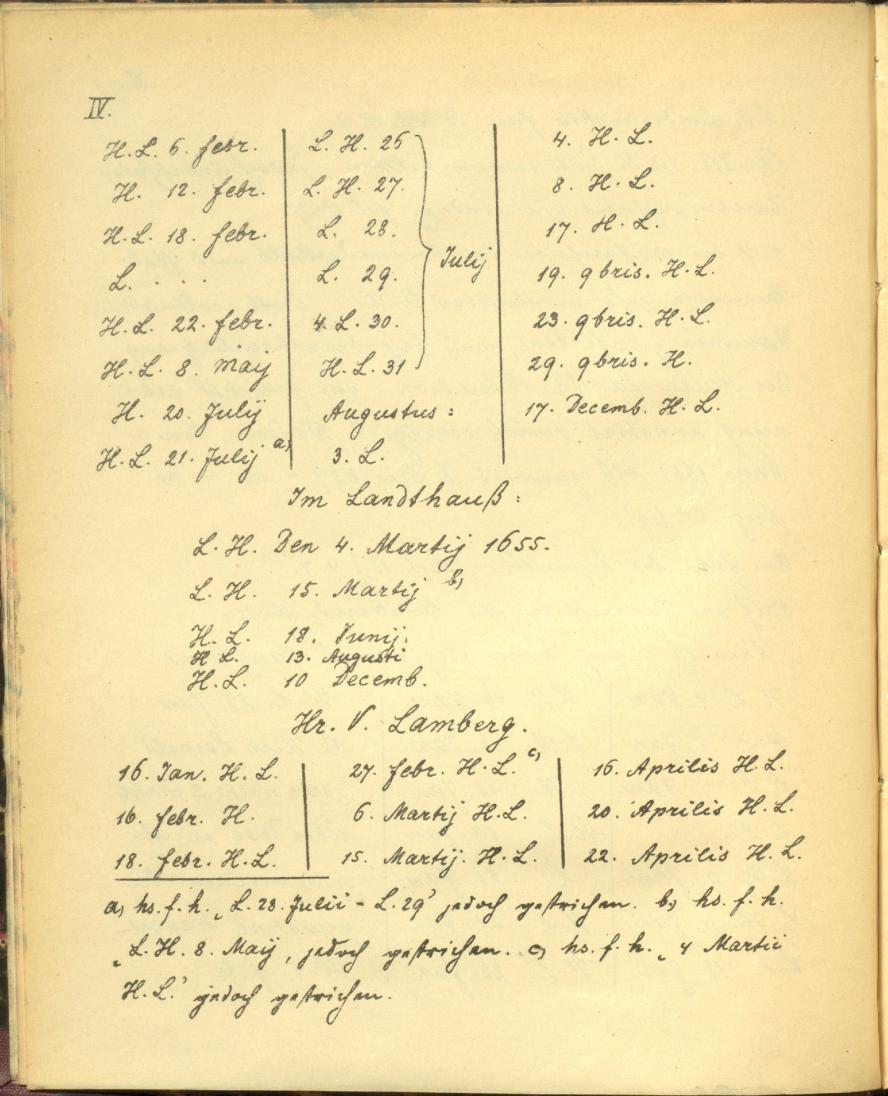 IV.
H. L. 6. febr.
H. 12. febr.
H. L. 18. febr.
L. . . .
H. L. 22. febr.
H. L. 8. Maij
H. 20. Julij
H. L. 21. Julij a)
L. H. 26
L. H. 27.
L. 28.
L. 29.
4. L. 30.
H. L. 31
Julij
Augustus:
3. L.
4. H. L.
8. H. L.
17. H. L.
19. 9bris. H. L.
23. 9bris. H. L.
29. 9bris. H.
17. Decemb. H. L.
Im Landthauß:
L. H. Den 4. Martij 1655.
L. H. 15. Martij b)
H. L. 18. Junij.
H L. 13. Augusti
H. L. 10 Decemb.
Hr. V. Lamberg.
16. Jan. H. L.
16. febr. H.
18. febr. H. L.
27. febr. H. L. c)
6. Martij H. L.
15. Martij. H. L.
16. Aprilis H. L.
20. Aprilis H. L.
22. Aprilis H. L.
a) hs. f. h. „L. 28. Julii - L. 29' jedoch gestrichen. b) hs. f. h.
„L. H. 8. Maij, jedoch gestrichen. c) hs. f. h. „4 Martii
H. L.' jedoch gestrichen.